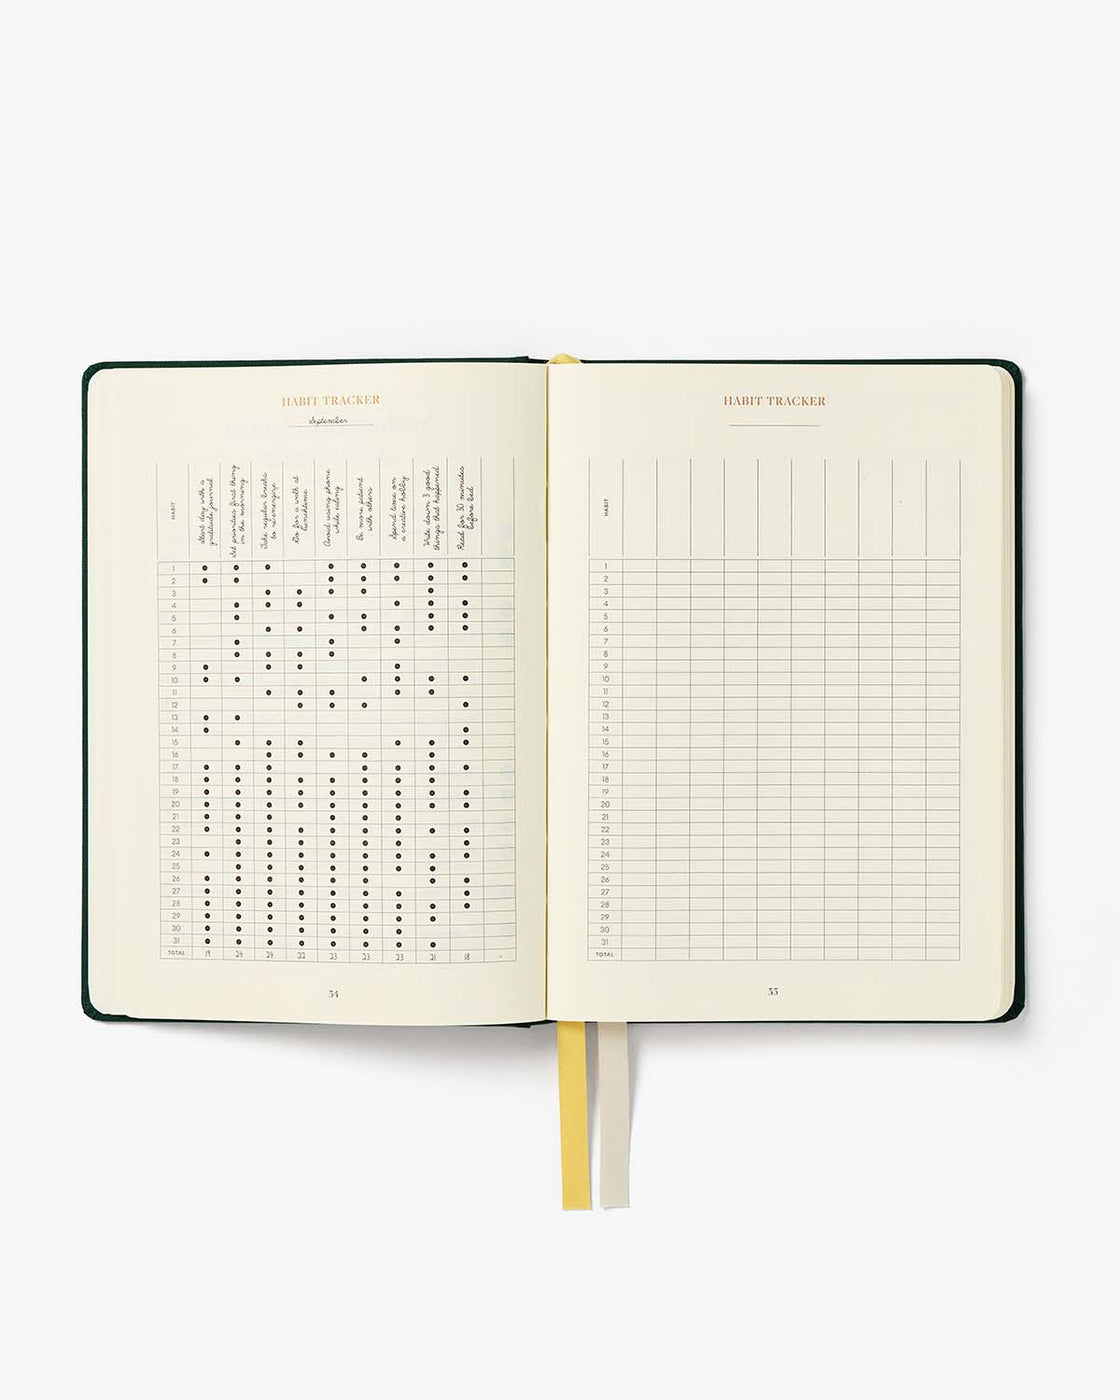 HABIT TRACKER
September
HABIT
Start day with a
gratitude journal
Set priorities first thing
in the morning
Take regular breaks
to re-energize
Go for a walk at
lunchtime
Avoid using phone
while eating
Be more patient
with others
Spend time on
a creative hobby
Write down 3 good
things that happened
Read for 30 minutes
before bed
1
2
3
4
5
6
7
8
9
10
11
12
13
14
15
16
17
18
19
20
21
22
23
24
25
26
27
28
29
30
31
TOTAL 19 24 24 22 23 23 23 21 18
54
HABIT TRACKER
HABIT
1
2
3
4
5
6
7
8
9
10
11
12
13
14
15
16
17
18
19
20
21
22
23
24
25
26
27
28
29
30
31
TOTAL
55